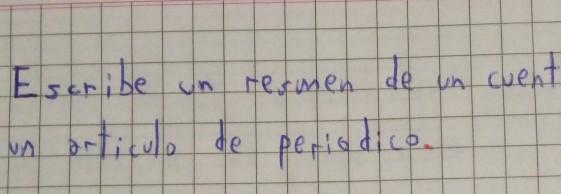 Escribe un resmen de un cuent
un articulo de periodico.